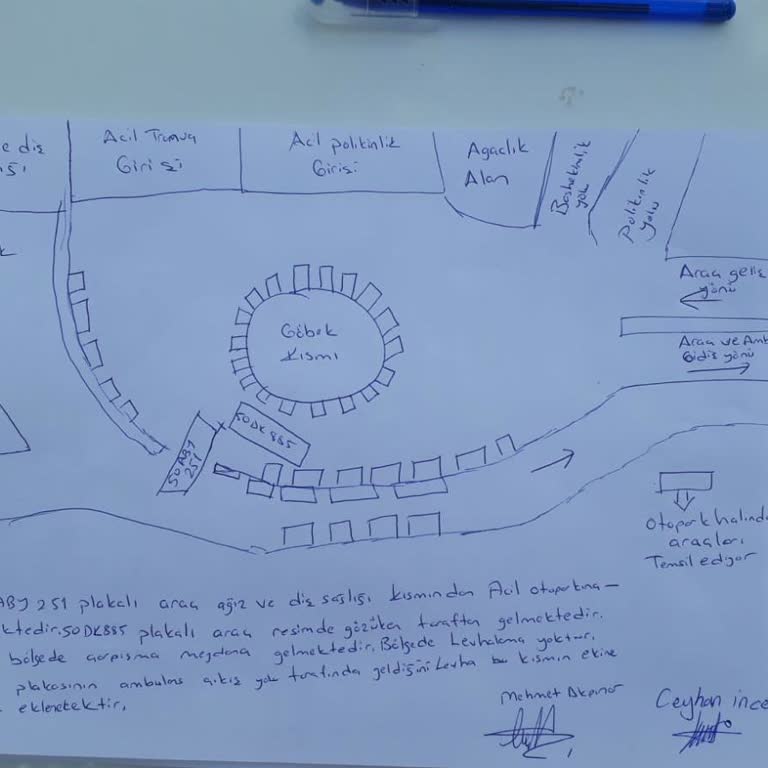 e diş
Acil Travma
Girişi
Acil polikinlik
Girişi
Agaclık
Alan
Polikinlik
yolu
Araç geliş
yönü
Araç ve Amb
Gidiş yönü
Göbek
Kısmı
50 DK 885
50 ABJ
251
Otopark halinde
araçları
Temsil ediyor
ABJ 251 plakalı araç ağız ve diş sağlığı kısmından Acil otoparkına
ktedir. 50 DK 885 plakalı araç resimde gözüken taraftan gelmektedir.
bölgede çarpışma meydana gelmektedir. Bölgede Levhalama yoktur.
plakasının ambulans çıkış yolu tarafında geldiğini Levha bu kısmın ekine
eklenecektir.
Mehmet Akpınar
Ceyhan ince